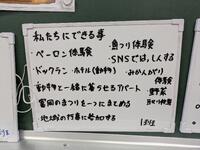 私たちにできる事
・ペーロン体験
・魚つり体験
・SNSではっしんする
・ドックラン・ホテル(動物)
・みかんがり体験
・動物と一緒に暮らせるアパート
野菜
・富岡のまつりを一つにまとめる
・地域の行事に参加する
1ぱん